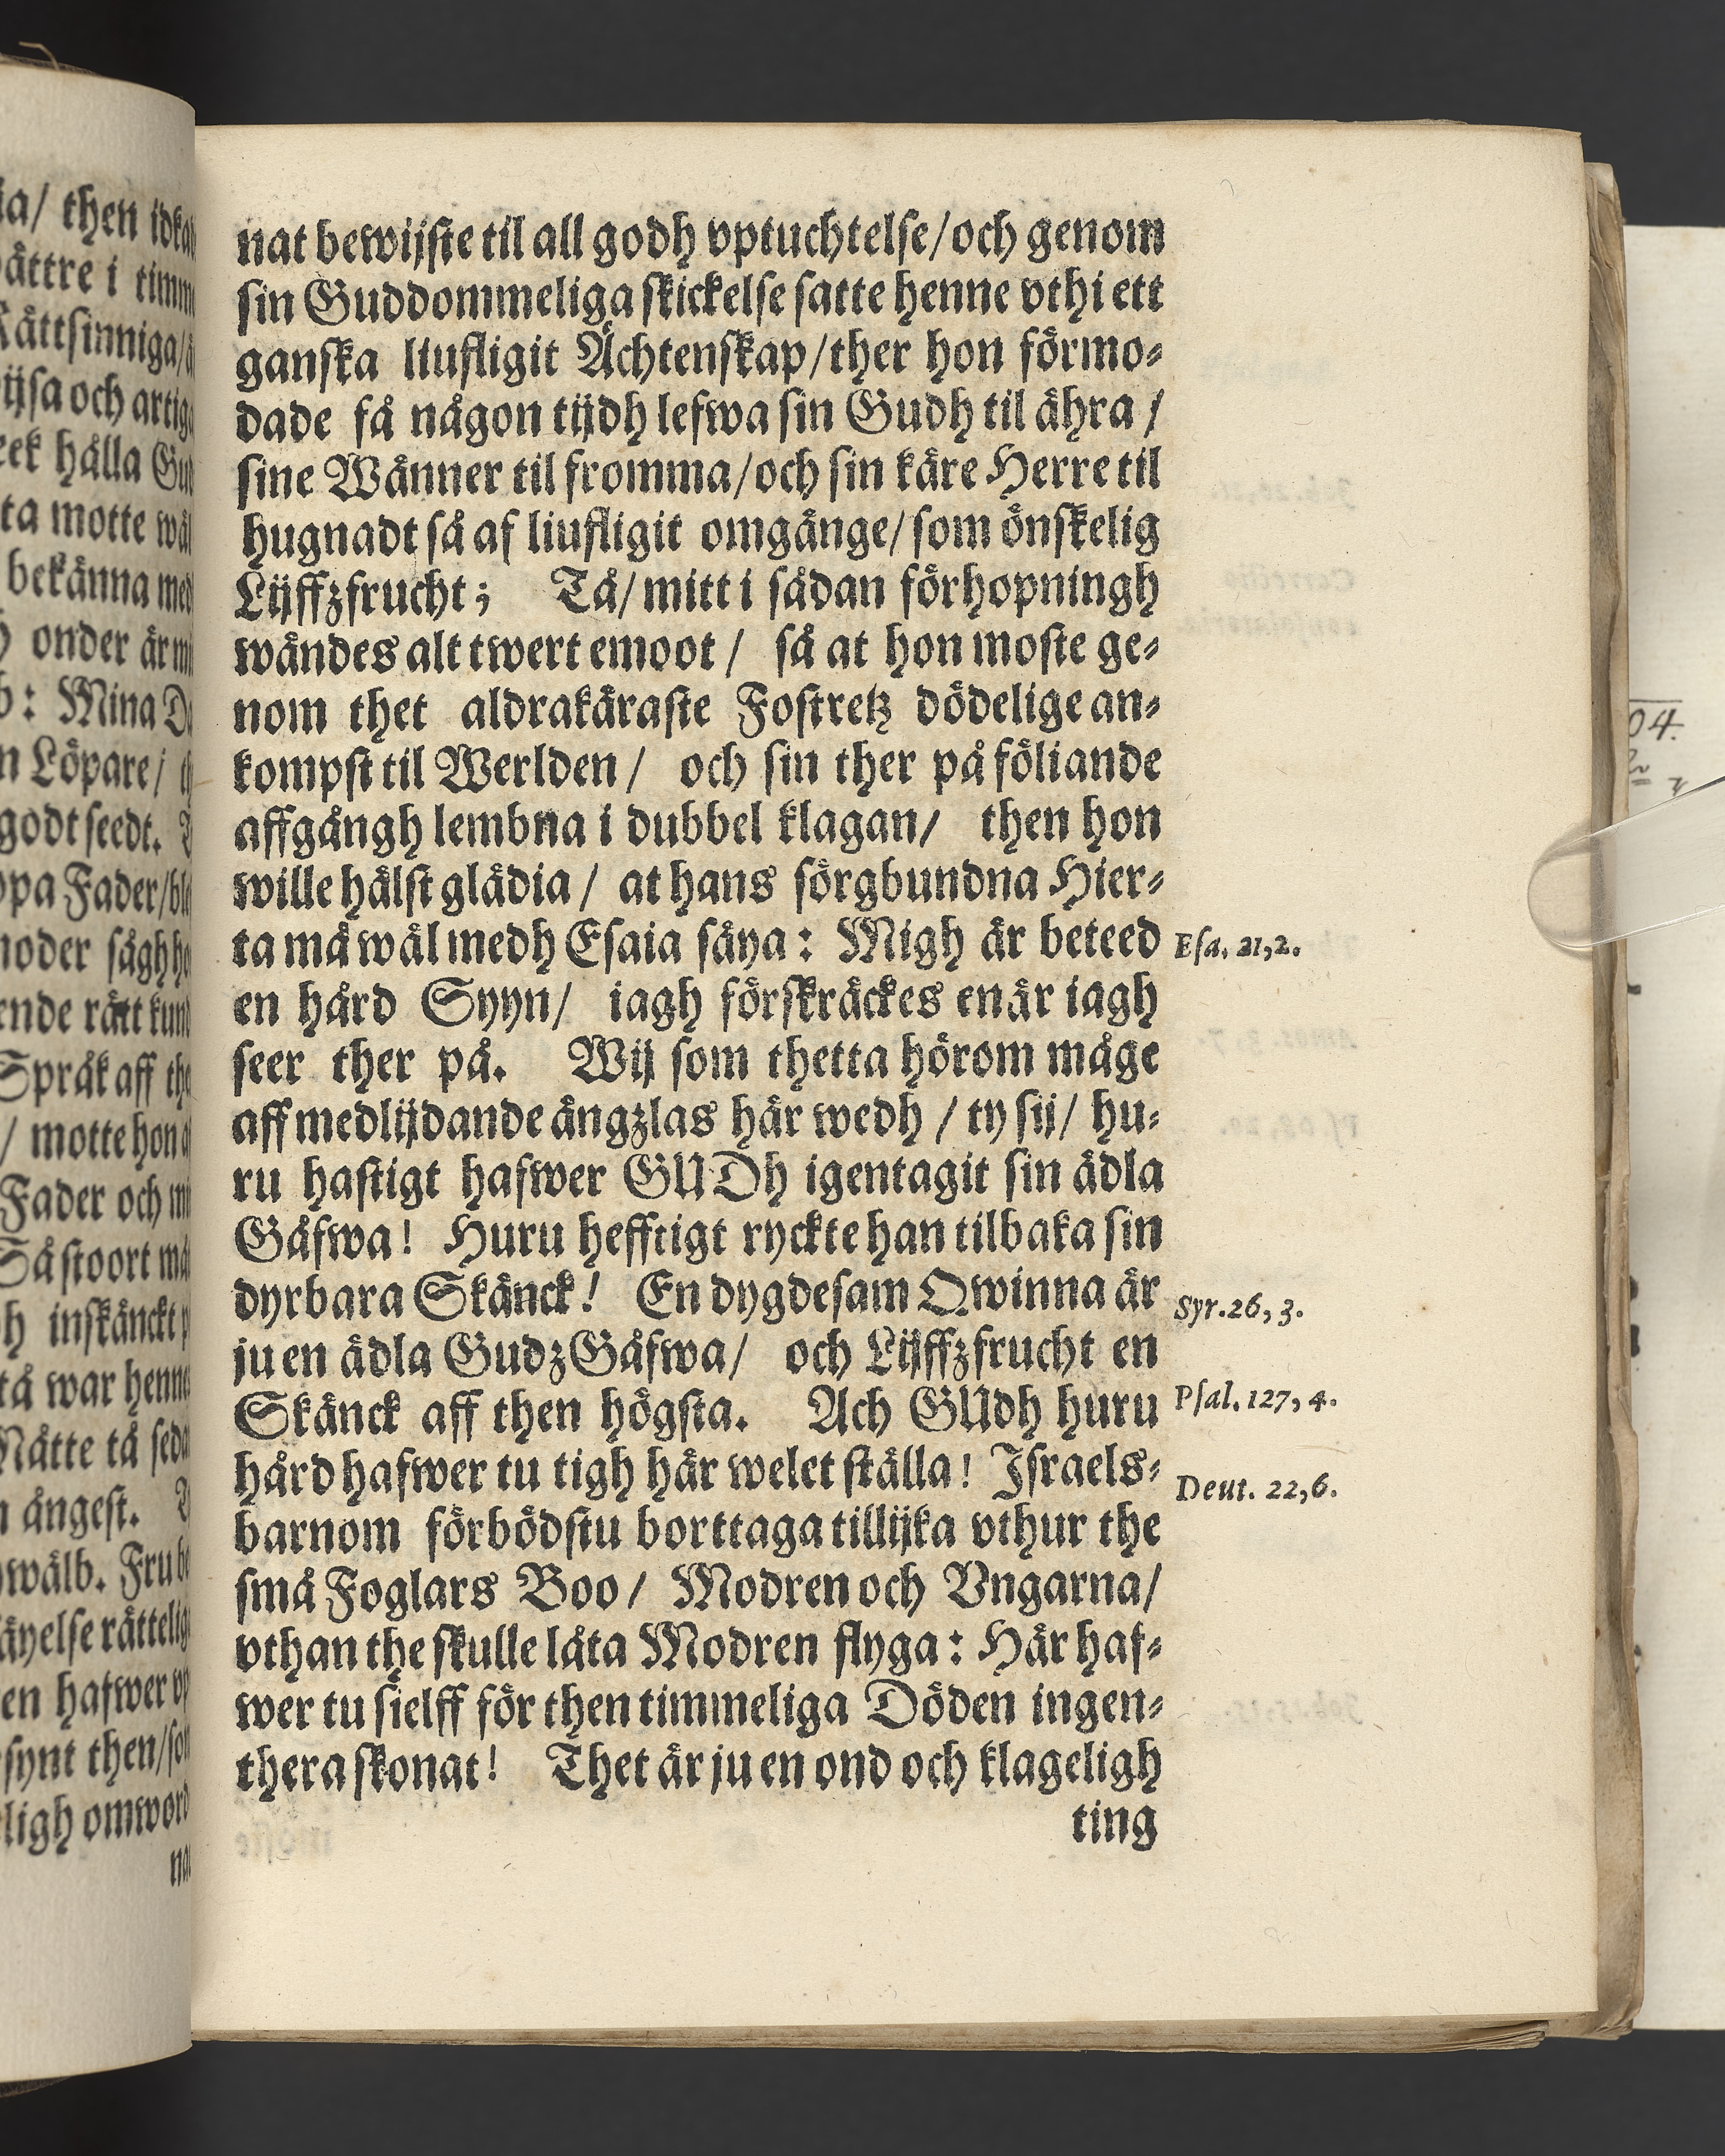 nat bewijste til all godh vptuchtelse/och genom
sin Guddommeliga skickelse satte henne vthi ett
ganska liufligit Ächtenskap/ther hon förmo-
dade få någon tijdh lefwa sin Gudh til ähra /
sine Wänner til fromma/och sin käre Herre til
hugnadt så af liufligit omgänge/som önskelig
Lijffzfrucht; Tå/mitt i sådan förhopningh
wändes alt twert emoot / så at hon moste ge-
nom thet aldrakäraste Fostretz dödelige an-
kompst til Werlden / och sin ther på följande
affgångh lembna i dubbel klagan/ then hon
wille hälst glädia / at hans sörgbundna Hier-
ta må wäl medh Esaia säya: Migh är beteed
Esa. 21,2.
en hård Syyn/ iagh förskräckes enär iagh
seer ther på. Wij som thetta hörom måge
aff medlijdande ängzlas här wedh / ty sij/ hu-
ru hastigt hafwer GUDh igentagit sin ädla
Gåfwa! Huru hefftigt ryckte han tilbaka sin
dyrbara Skänck! En dygdesam Qwinna är
Syr.26,3.
ju en ädla Gudz Gåfwa/ och Lijffzfrucht en
Skänck aff then högsta. Ach GUdh huru
Psal.127,4.
hård hafwer tu tigh här welet ställa! Israels-
Deut. 22,6.
barnom förbödstu borttaga tillijka vthur the
små Foglars Boo/ Modren och Vngarna/
vthan the skulle låta Modren flyga: Här haf-
wer tu sielff för then timmeliga Döden ingen-
thera skonat! Thet är ju en ond och klageligh
ting